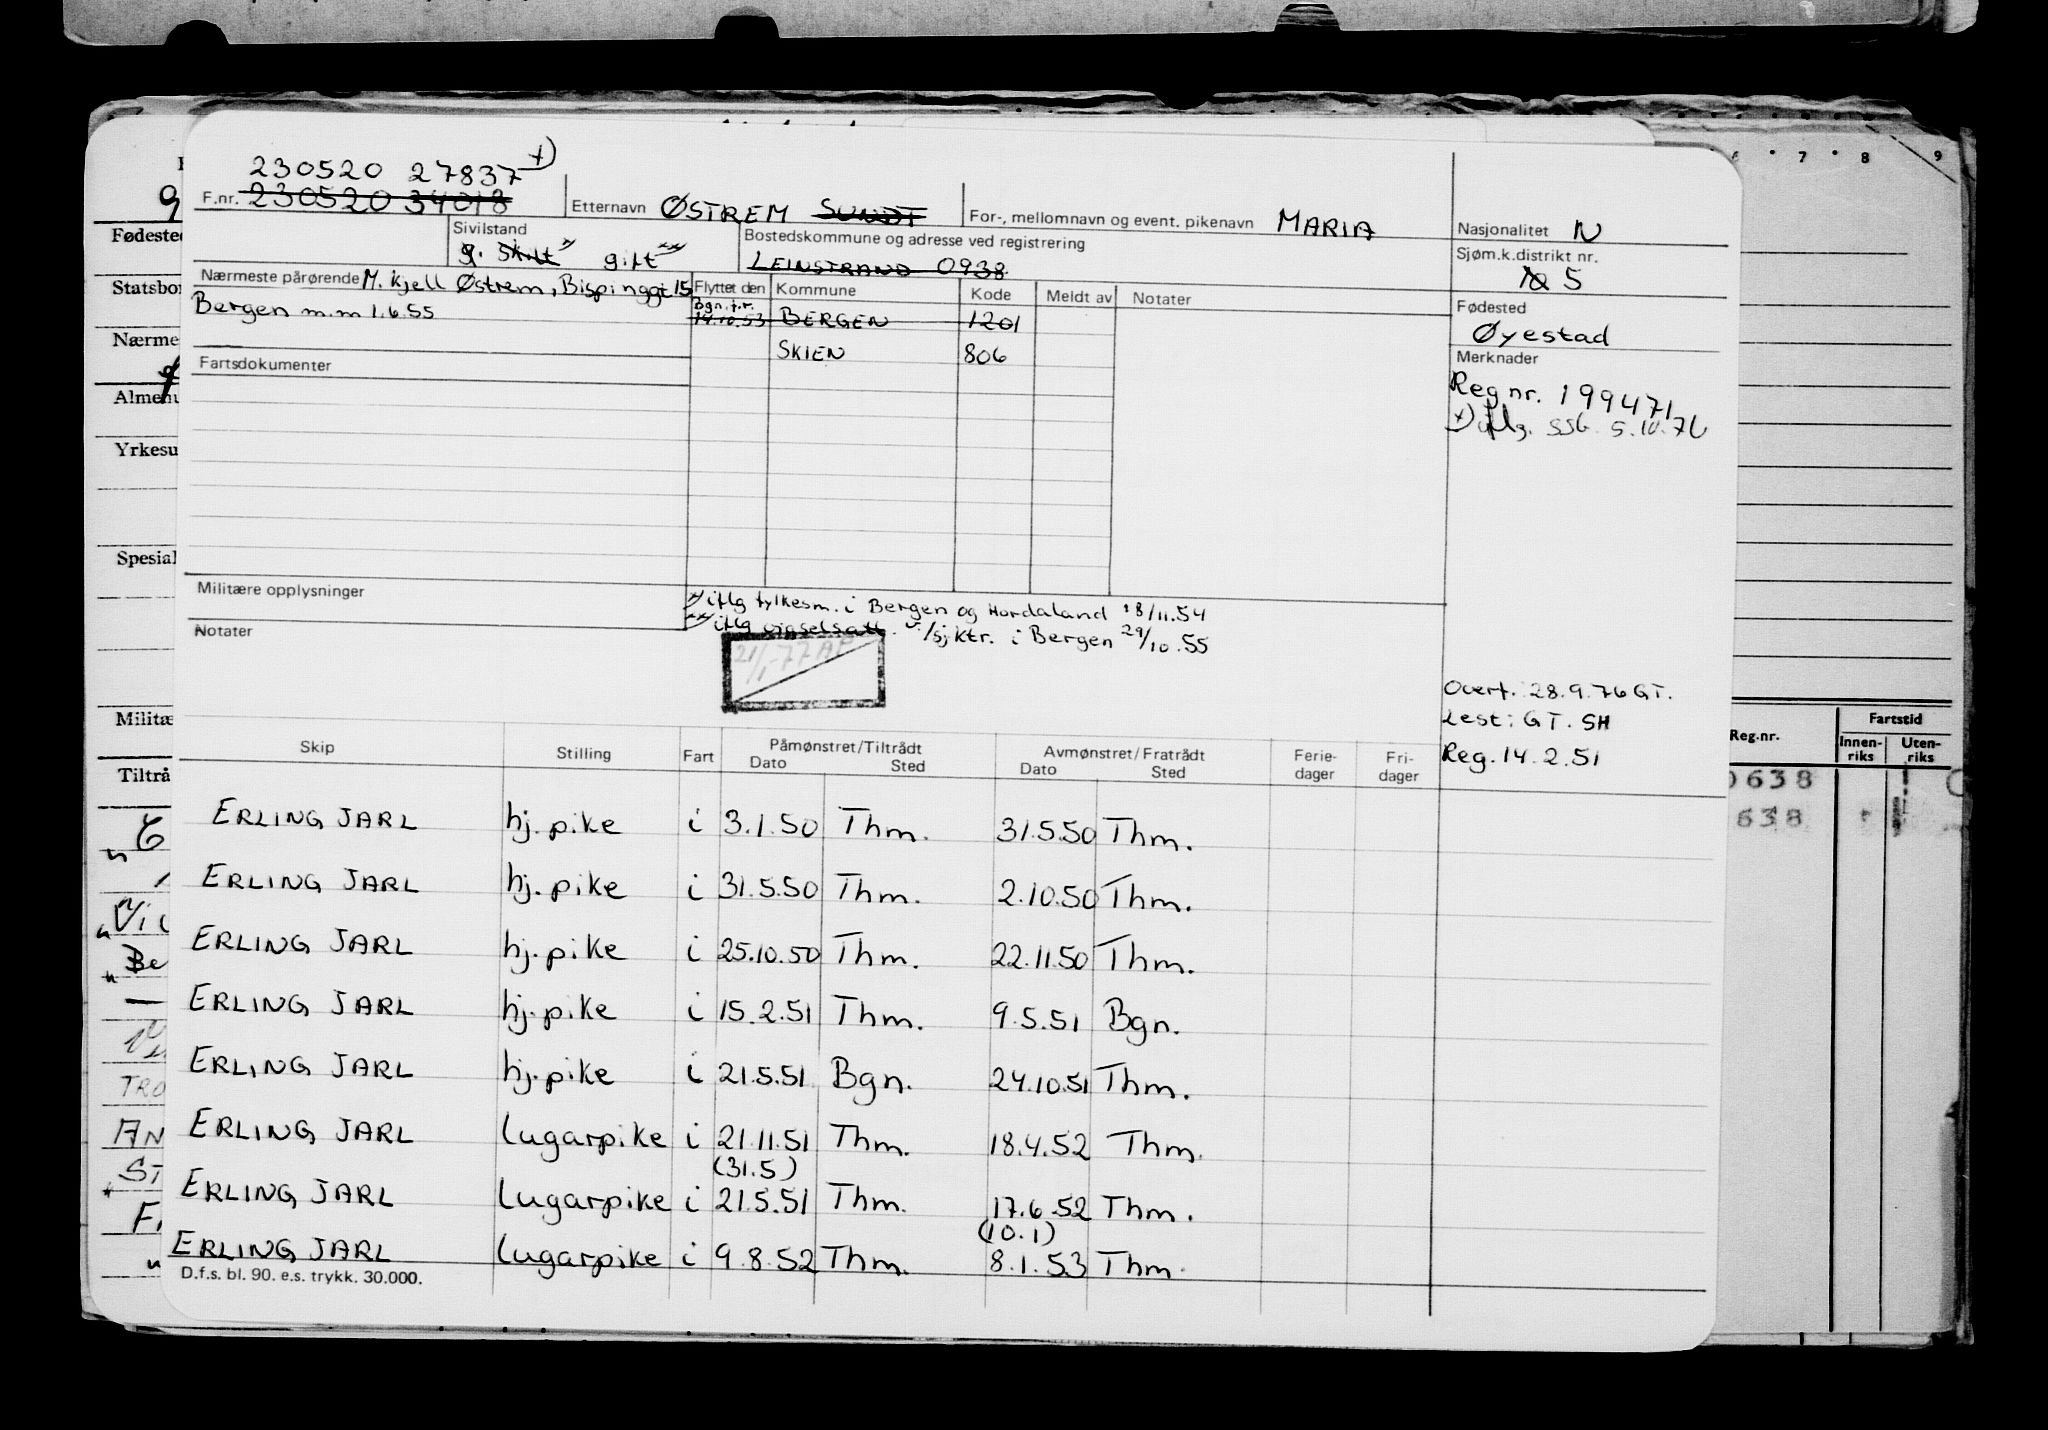 230520 27837 x)
F.nr. 230520 34018
Etternavn ØSTREM SUNDT
For-, mellomnavn og event. pikenavn MARIA
Nasjonalitet N
Sivilstand
g. skilt x) gift xx)
Bostedskommune og adresse ved registrering
LEINSTRAND 0938
Sjøm.k.distrikt nr.
5
Nærmeste pårørende M. Kjell Østrem, Bispinggt 15
Bergen m.m 1.6.55
Flyttet den Kommune Kode Meldt av Notater
Bgn. f.r.
14.10.53 BERGEN 1201
SKIEN 806
Fødested
Øyestad
Merknader
Reg nr. 199471
x) iflg. SSB. 5.10.76
Fartsdokumenter
Militære opplysninger
x) iflg fylkesm. i Bergen og Hordaland 18/11.54
xx) iflg vigselsatt. v/sjktr. i Bergen 29/10.55
Notater
21/1-77 AF
Overf. 28.9.76 GT.
Lest: GT. SH
Reg. 14.2.51
Skip Stilling Fart Påmønstret/Tiltrådt Avmønstret/Fratrådt Ferie- Fri-
Dato Sted Dato Sted dager dager
ERLING JARL hj.pike i 3.1.50 Thm. 31.5.50 Thm.
ERLING JARL hj.pike i 31.5.50 Thm. 2.10.50 Thm.
ERLING JARL hj.pike i 25.10.50 Thm. 22.11.50 Thm.
ERLING JARL hj.pike i 15.2.51 Thm. 9.5.51 Bgn.
ERLING JARL hj.pike i 21.5.51 Bgn. 24.10.51 Thm.
ERLING JARL lugarpike i 21.11.51 Thm. 18.4.52 Thm.
(31.5)
ERLING JARL lugarpike i 21.5.51 Thm. 17.6.52 Thm.
(10.1)
ERLING JARL lugarpike i 9.8.52 Thm. 8.1.53 Thm.
D.f.s. bl. 90. e.s. trykk. 30.000.
Fødested
Statsbor
Nærme
Almenu
Yrkesu
Spesial
Militæ
Tiltrå
TRO
AN
ST
7 8 9
Reg.nr. Fartstid
Innen- Uten-
riks riks
0638
638